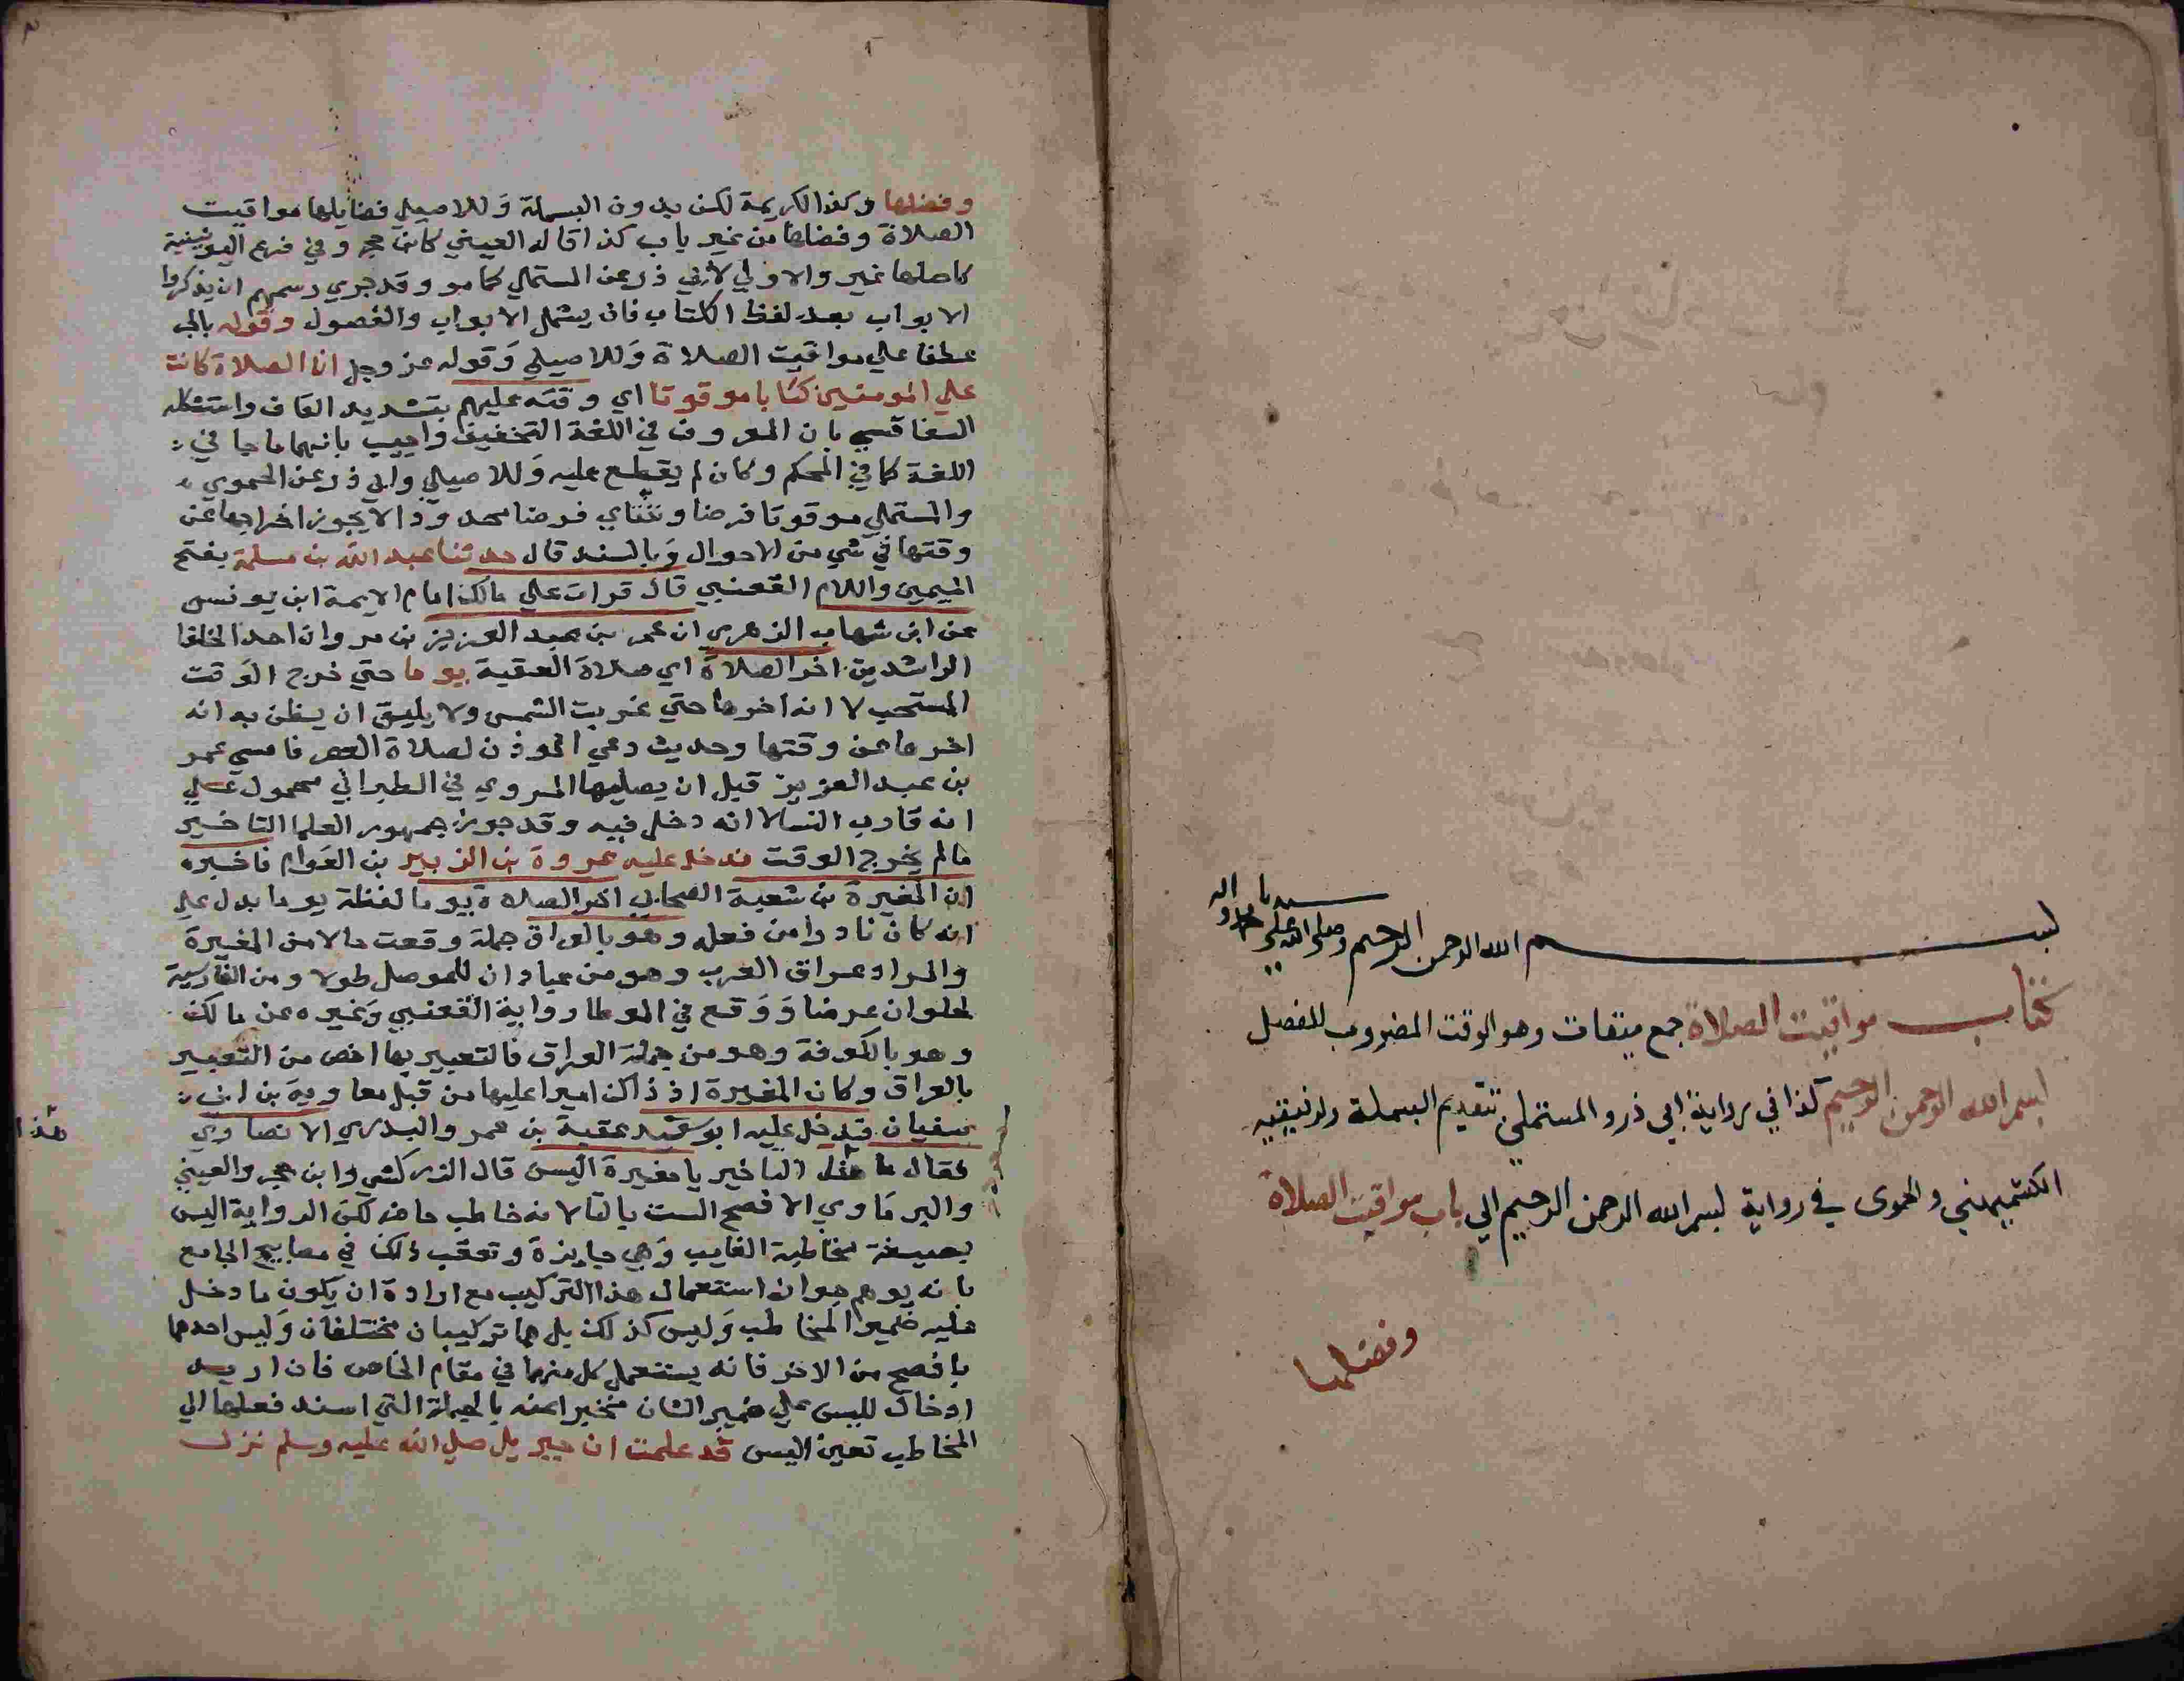 بسم الله الرحمن الرحيم وصلى الله على سيدنا محمد واله
كتاب مواقيت الصلاة جمع ميقات وهو الوقت المضروب للفصل
بسم الله الرحمن الرحيم كذا في رواية ابي ذر والمستملي بتقديم البسملة ولرفيقيه
الكشميهني والحموي في رواية بسم الله الرحمن الرحيم الي باب مواقيت الصلاة
وفضلها
وفضلها وكذا لكريمة لكن بدون البسملة وَللاصيلي فضايلها مواقيت
الصلاة وفضلها من غير باب كذا قاله العيني كابن حجر وفي فرع اليونينية
كاصلها غير والاولي لابي ذر عن المستملي كما مر وقد جري رسمهم ان يذكروا
الابواب بعد لفظ الكتاب فانه يشمل الابواب والفصول وقوله بالجر
عطفا علي مواقيت الصلاة وَللاصيلي وَقوله عز وجل ان الصلاة كانت
علي المومنين كتابا موقوتا اي وقته عليهم بتشديد القاف واستشكله
السفاقسي بان المعروف في اللغة التخفيف واجيب بانهما جا في
اللغة كما في المحكم وكان لم يقطع عليه وَللاصيلي وابي ذر عن الحموي
والمستملي موقوتا فرضا وقتاي فرضا محدودا لا يجوز اخراجها عن
وقتها في شي من الاحوال وَبالسند قال حدثنا عبد الله بن مسلمة بفتح
الميمين واللام القعنبي قال قرات علي مالك امام الايمة ابن يونس
عن ابن شهاب الزهري ان عمر بن عبد العزيز بن مروان احد الخلفا
الراشدين اخر الصلاة اي صلاة العقية يوما حتي خرج الوَقت
المستحب لا انه اخرها حتي غربت الشمس ولا يليق ان يظن به انه
اخرها عن وقتها وحديث دعي الموذن لصلاة العصر فامسي عمر
بن عبد العزيز قبل ان يصليها المروي في الطبراني محمول علي
انه قارب المسا لا انه دخل فيه وقد جوز جمهور العلما التاخير
مالم يخرج الوقت فدخل عليه عروة بن الزبير بن العَوام فاخبره
ان المغيرة بن شعبة الصحابي اخر الصلاة يوما لفظة يوما يدل علي
انه كان نادرا من فعله وهو بالعراق جملة وقعت حالا من المغيرة
والمراد عراق العرب وهو من عبادان للموصل طولا ومن القادسية
لحلوان عرضا وَوَقع في الموطا رواية القعنبي وَغيره عن مالك
وهو بالكوفة وهو من جملة العراق فالتعبير بها اخص من التعبير
بالعراق وكان المغيرة اذ ذاك اميرا عليها من قبل معاوية بن ابي
سفيان فدخل عليه ابو مسعود عقبة بن عمر والبدري الانصاري
فقال ما هذا التاخير يا مغيرة اليس قال الزركشي وابن حجر والعيني
هذا
والبرمَاوي الافصح الست بالتا لانه خاطب حاضر لكن الرواية اليس
بصيغة مخاطبة الغايب وَهي جايزة وتعقب ذلك في مصابيح الجامع
بانه يوهم جواز استعمال هذا التركيب مع ارادة ان يكون ما دخل
عليه ضمير المخاطب وَليس كذلك بل هما تركيبان مختلفان وَليس احدهما
بافصح من الاخر فانه يستعمل كل منهما في مقام الخاص فان اريد
ادخال لليس علي ضمير الشان مخبرا عنه بالجملة التي اسند فعلها الي
المخاطب تعين اليس قد علمت ان جبريل صلي الله عليه وسلم نزل